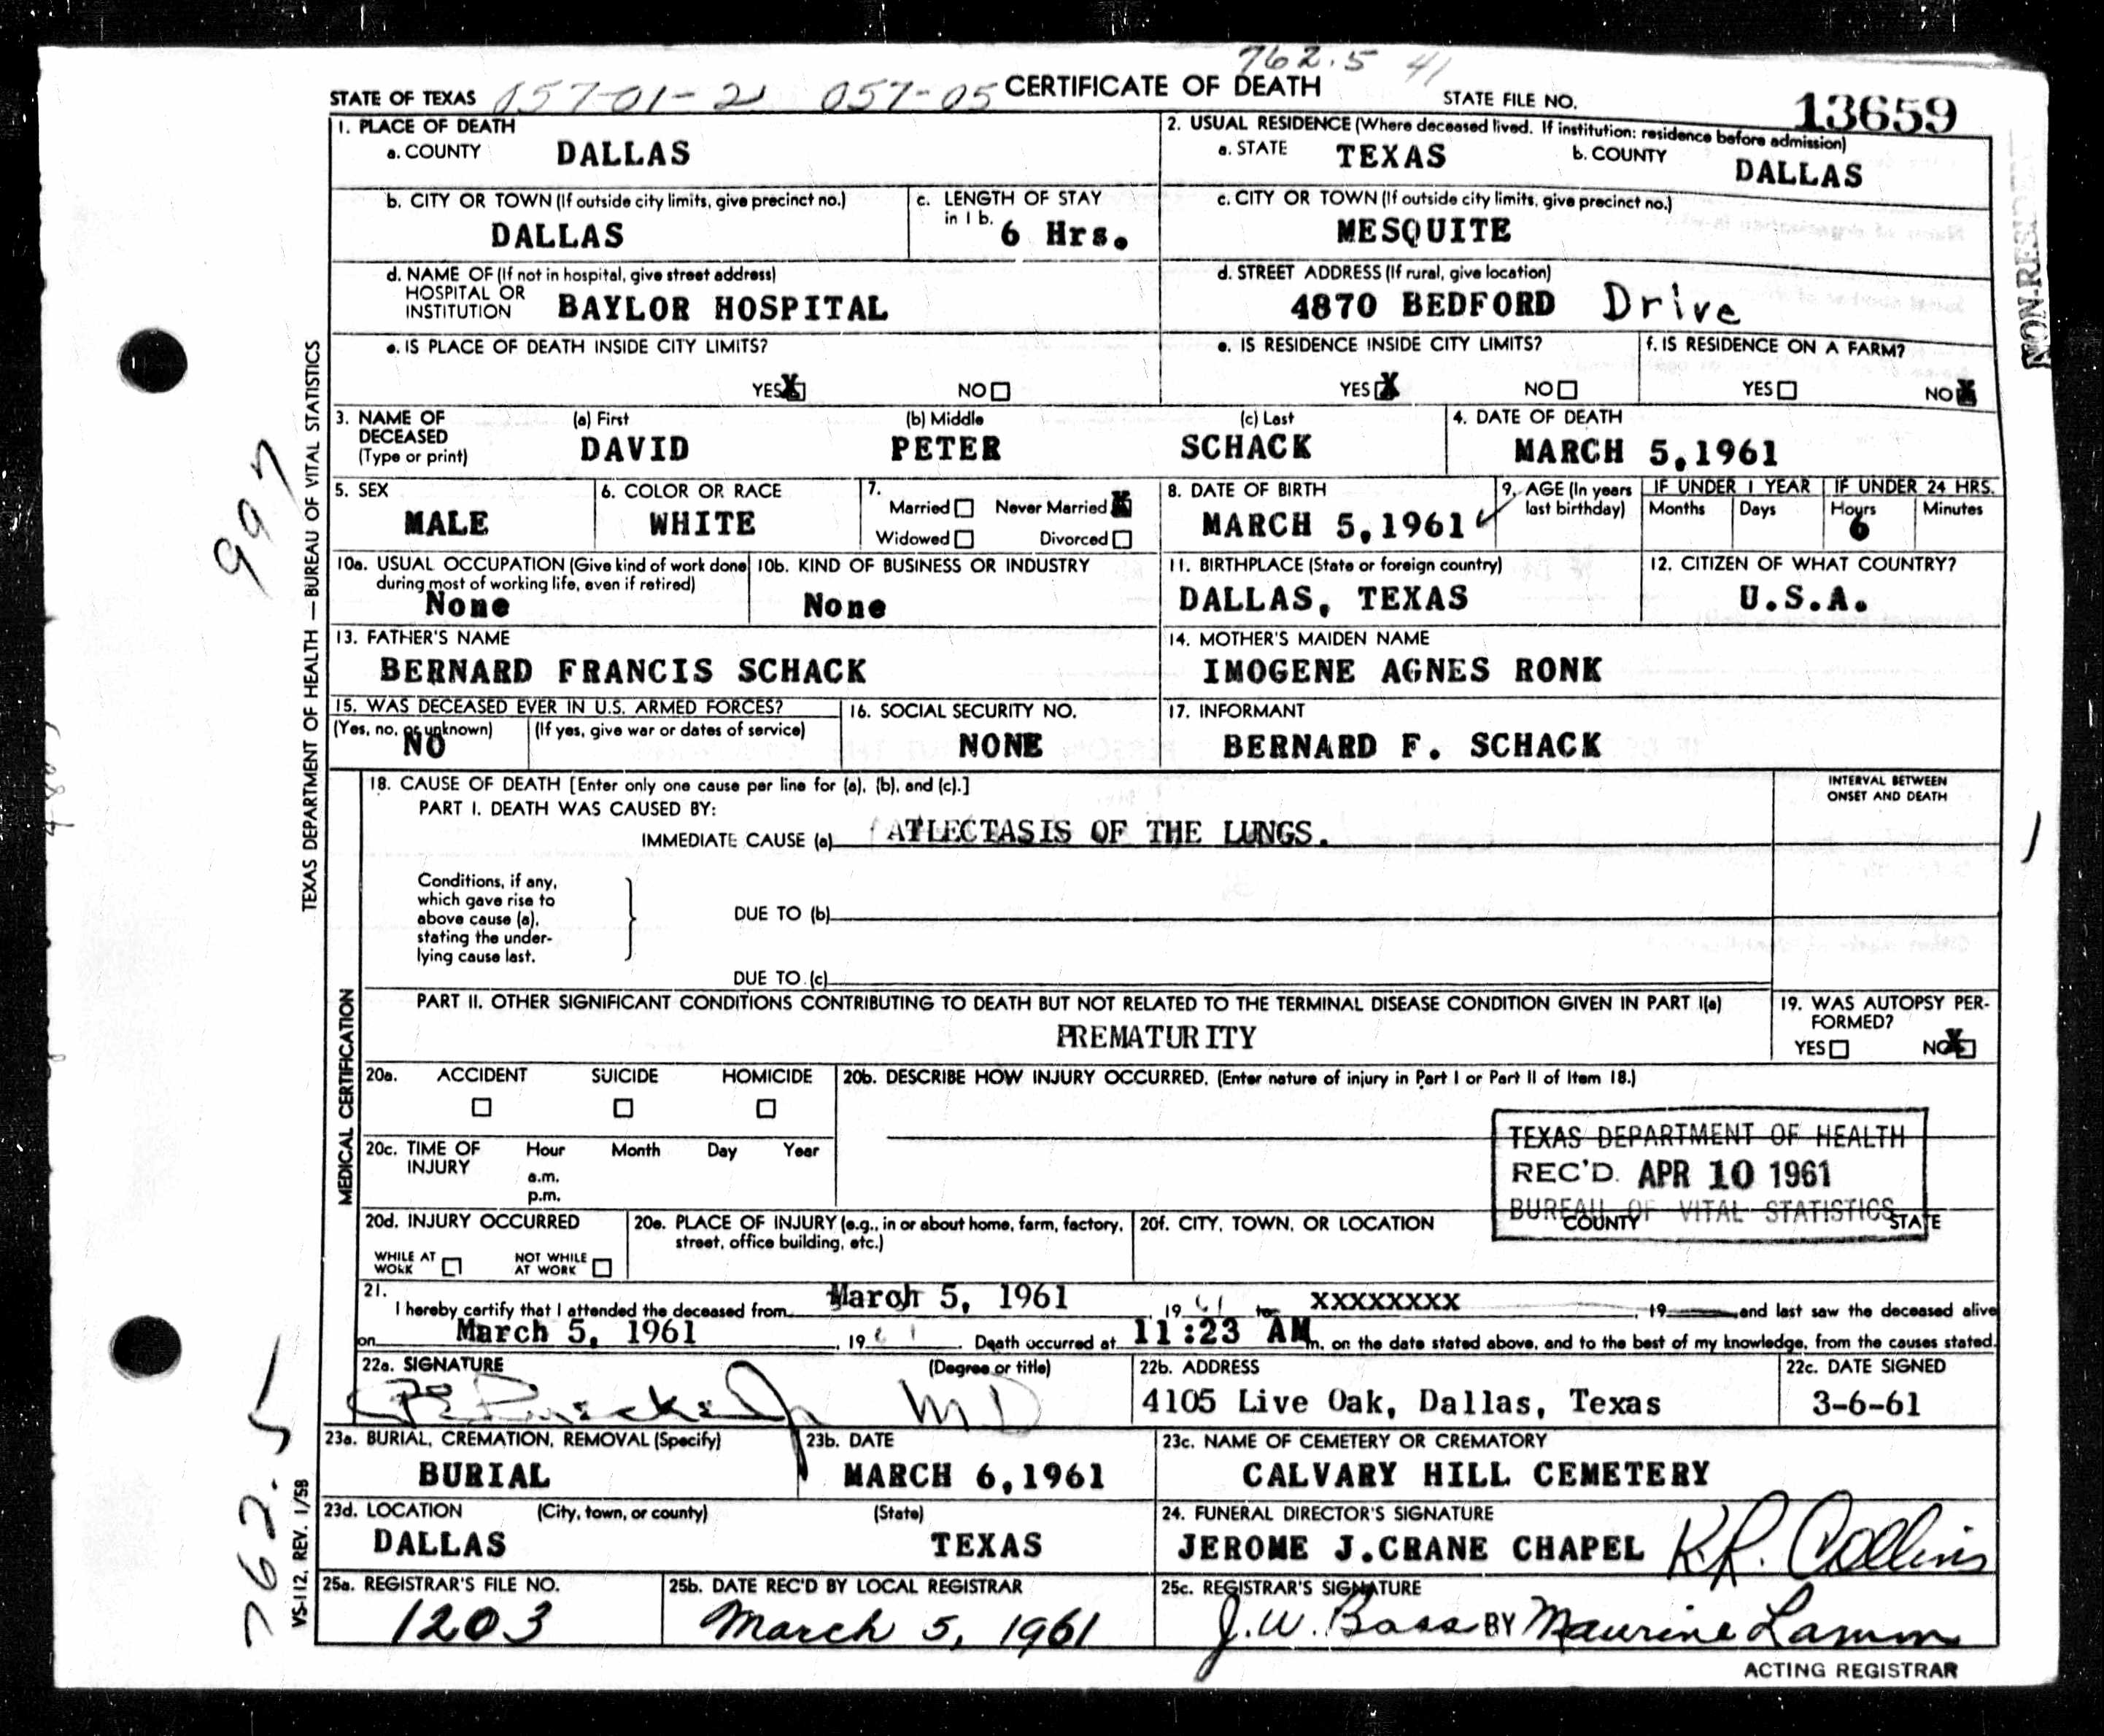 762.5 41
STATE OF TEXAS 057-01-2 057-05 CERTIFICATE OF DEATH STATE FILE NO. 13659
1. PLACE OF DEATH
a. COUNTY DALLAS
2. USUAL RESIDENCE (Where deceased lived. If institution: residence before admission)
a. STATE TEXAS b. COUNTY DALLAS
b. CITY OR TOWN (If outside city limits, give precinct no.)
DALLAS
c. LENGTH OF STAY
in 1 b. 6 Hrs.
c. CITY OR TOWN (If outside city limits, give precinct no.)
MESQUITE
d. NAME OF (If not in hospital, give street address)
HOSPITAL OR
INSTITUTION BAYLOR HOSPITAL
d. STREET ADDRESS (If rural, give location)
4870 BEDFORD Drive
e. IS PLACE OF DEATH INSIDE CITY LIMITS?
YES X NO
e. IS RESIDENCE INSIDE CITY LIMITS?
YES X NO
f. IS RESIDENCE ON A FARM?
YES NO X
NON-RESIDENT
3. NAME OF
DECEASED
(Type or print)
(a) First (b) Middle (c) Last
DAVID PETER SCHACK
4. DATE OF DEATH
MARCH 5,1961
5. SEX
MALE
6. COLOR OR RACE
WHITE
7.
Married Never Married X
Widowed Divorced
8. DATE OF BIRTH
MARCH 5,1961
9. AGE (In years
last birthday)
IF UNDER 1 YEAR
Months Days
IF UNDER 24 HRS.
Hours Minutes
6
10a. USUAL OCCUPATION (Give kind of work done
during most of working life, even if retired)
None
10b. KIND OF BUSINESS OR INDUSTRY
None
11. BIRTHPLACE (State or foreign country)
DALLAS, TEXAS
12. CITIZEN OF WHAT COUNTRY?
U.S.A.
13. FATHER'S NAME
BERNARD FRANCIS SCHACK
14. MOTHER'S MAIDEN NAME
IMOGENE AGNES RONK
15. WAS DECEASED EVER IN U.S. ARMED FORCES?
(Yes, no, or unknown) (If yes, give war or dates of service)
NO
16. SOCIAL SECURITY NO.
NONE
17. INFORMANT
BERNARD F. SCHACK
18. CAUSE OF DEATH [Enter only one cause per line for (a), (b), and (c).]
PART I. DEATH WAS CAUSED BY:
IMMEDIATE CAUSE (a) ATLECTASIS OF THE LUNGS.
INTERVAL BETWEEN
ONSET AND DEATH
Conditions, if any,
which gave rise to
above cause (a),
stating the under-
lying cause last.
DUE TO (b)
DUE TO (c)
PART II. OTHER SIGNIFICANT CONDITIONS CONTRIBUTING TO DEATH BUT NOT RELATED TO THE TERMINAL DISEASE CONDITION GIVEN IN PART I(a)
PREMATURITY
19. WAS AUTOPSY PER-
FORMED?
YES NO X
20a. ACCIDENT SUICIDE HOMICIDE
20b. DESCRIBE HOW INJURY OCCURRED. (Enter nature of injury in Part I or Part II of Item 18.)
20c. TIME OF
INJURY
Hour Month Day Year
a.m.
p.m.
TEXAS DEPARTMENT OF HEALTH
REC'D. APR 10 1961
BUREAU OF VITAL STATISTICS
20d. INJURY OCCURRED
WHILE AT
WORK
NOT WHILE
AT WORK
20e. PLACE OF INJURY (e.g., in or about home, farm, factory,
street, office building, etc.)
20f. CITY, TOWN, OR LOCATION COUNTY STATE
21.
I hereby certify that I attended the deceased from March 5, 1961, 19 61 to XXXXXXXX, 19 and last saw the deceased alive
on March 5, 1961, 19 61. Death occurred at 11:23 AM m. on the date stated above, and to the best of my knowledge, from the causes stated.
22a. SIGNATURE (Degree or title)
MD
22b. ADDRESS
4105 Live Oak, Dallas, Texas
22c. DATE SIGNED
3-6-61
23a. BURIAL, CREMATION, REMOVAL (Specify)
BURIAL
23b. DATE
MARCH 6,1961
23c. NAME OF CEMETERY OR CREMATORY
CALVARY HILL CEMETERY
23d. LOCATION (City, town, or county) (State)
DALLAS TEXAS
24. FUNERAL DIRECTOR'S SIGNATURE
JEROME J.CRANE CHAPEL K.R. Collins
25a. REGISTRAR'S FILE NO.
1203
25b. DATE REC'D BY LOCAL REGISTRAR
March 5, 1961
25c. REGISTRAR'S SIGNATURE
J.W. Bass BY Maurine Lamm
ACTING REGISTRAR
TEXAS DEPARTMENT OF HEALTH — BUREAU OF VITAL STATISTICS
MEDICAL CERTIFICATION
VS-112, REV. 1/58
997
762.5